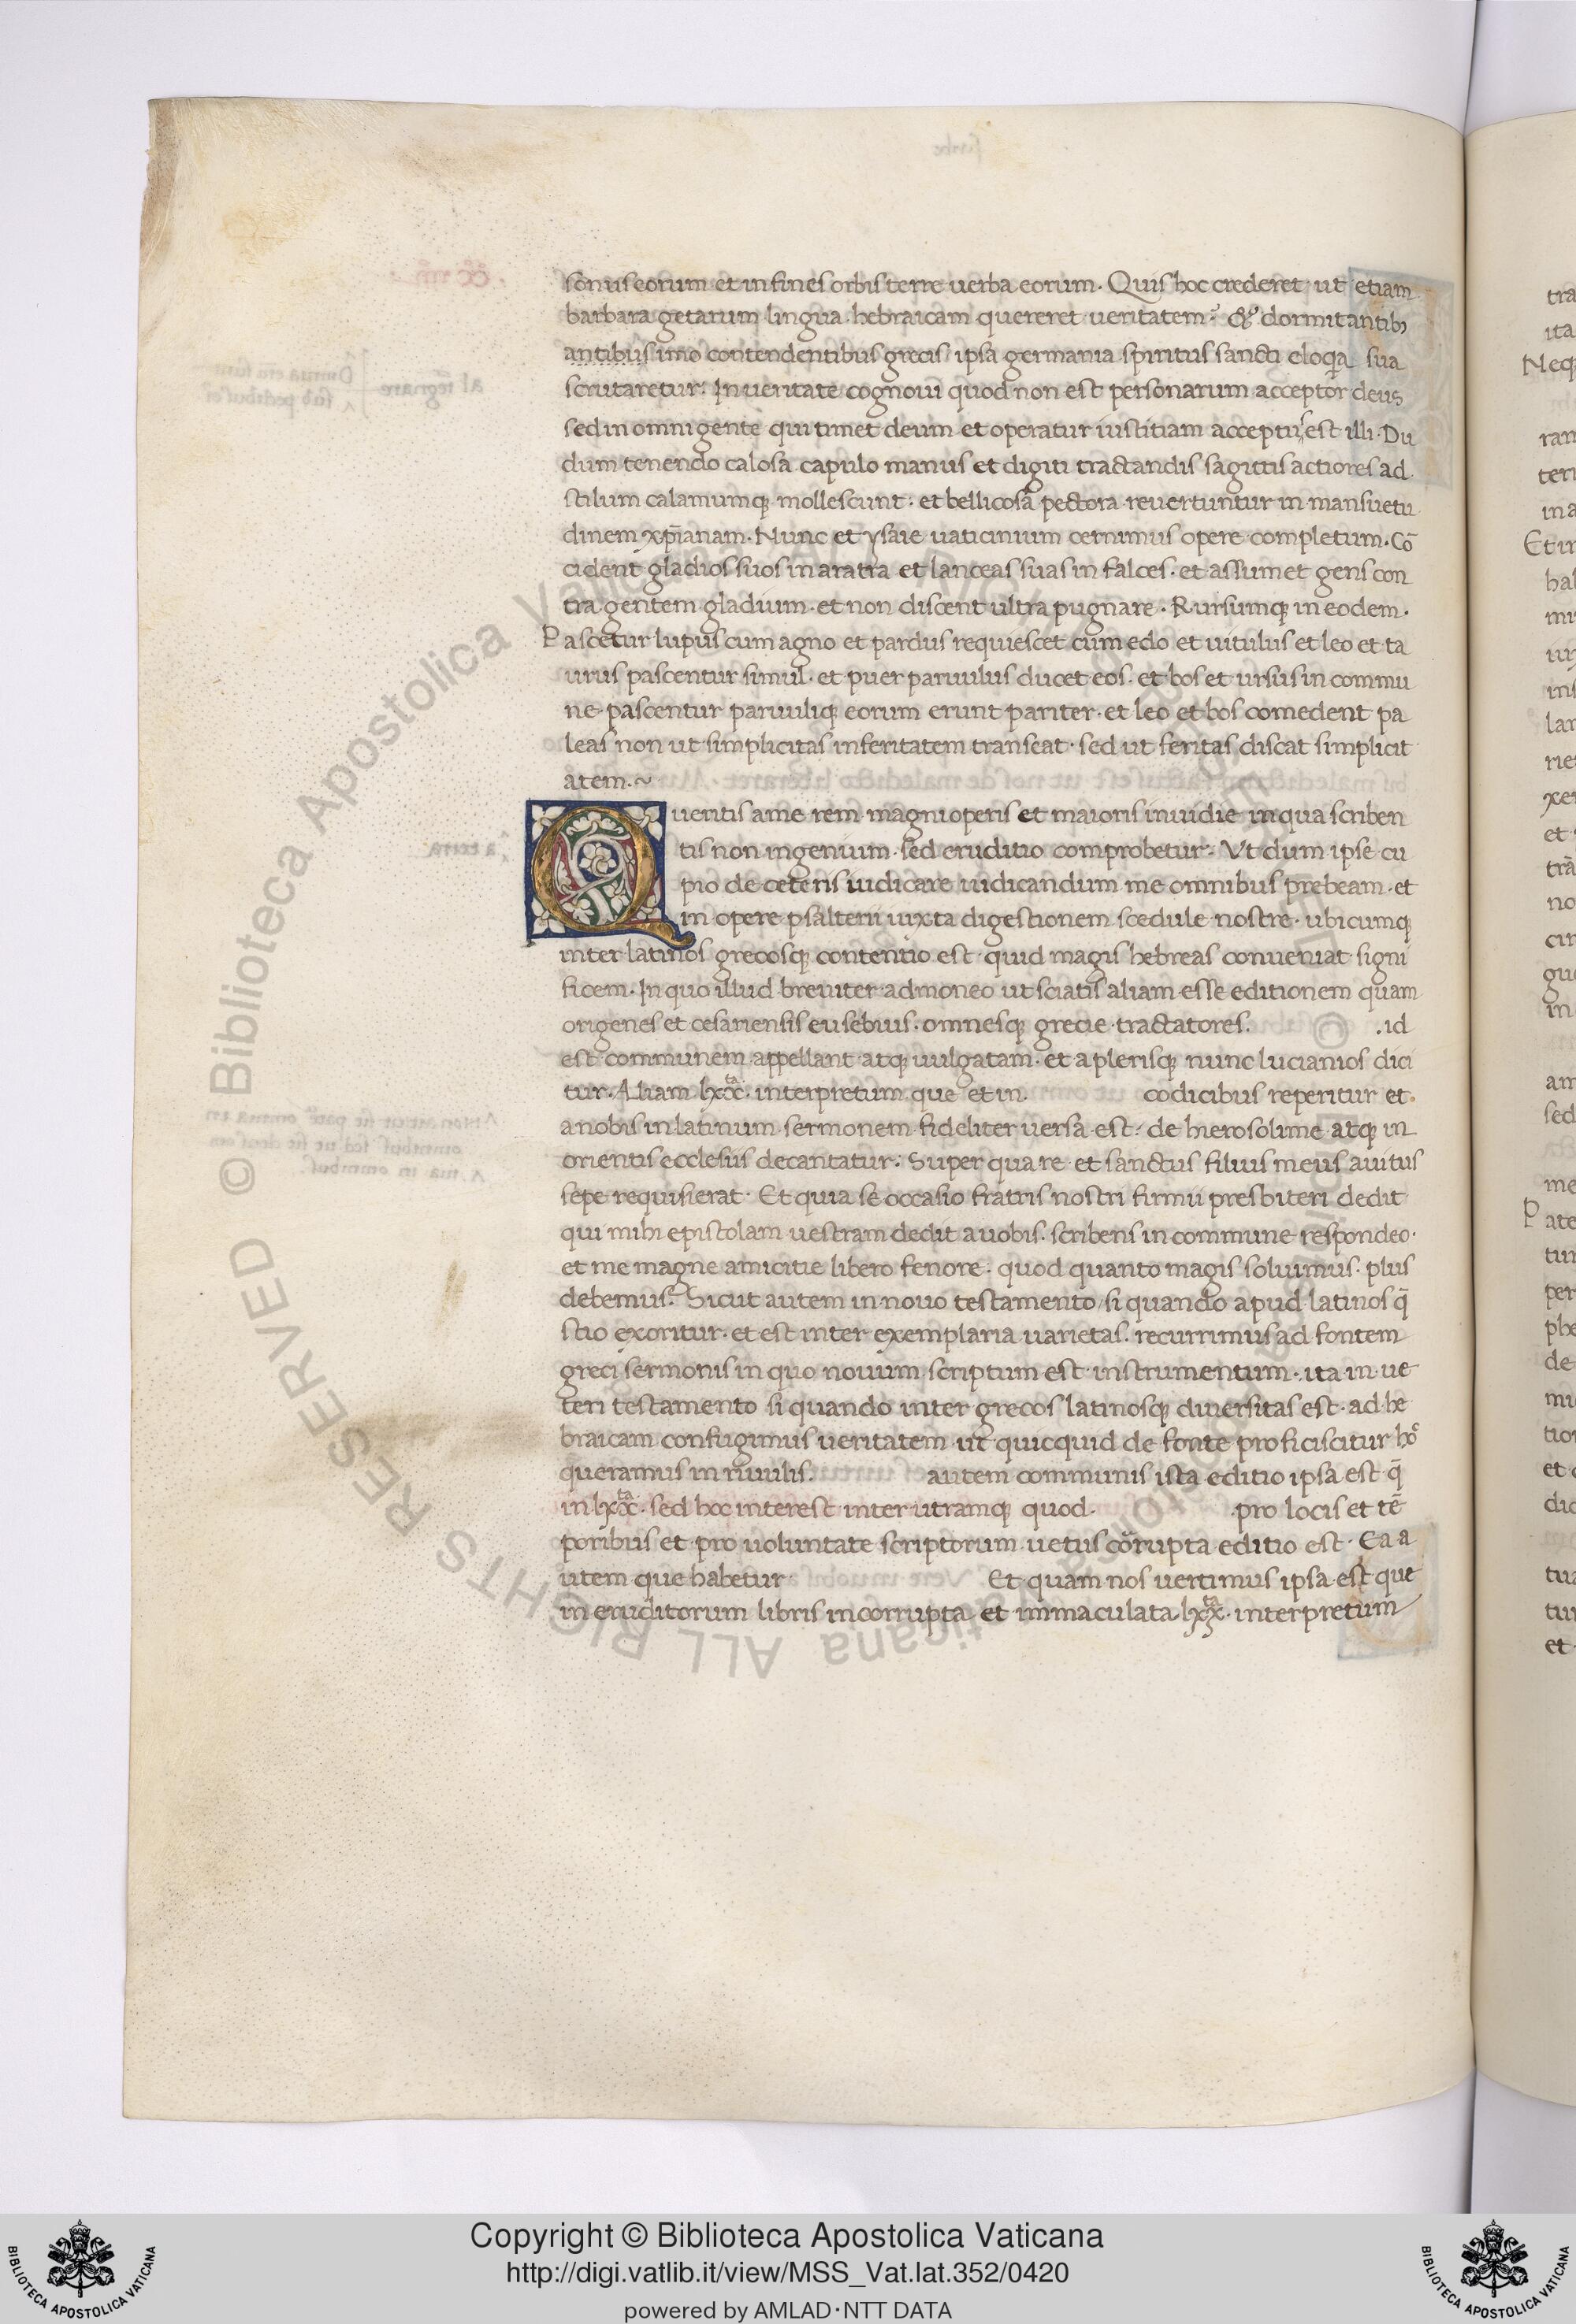 sonus eorum et in fines orbis terre uerba eorum. Quis hoc crederet ut etiam
barbara getarum lingua hebraicam quereret ueritatem? & dormitantibꝫ
antibus imo contendentibus grecis ipsa germania spiritus sancti eloqͣa sua
scrutaretur: In ueritate cognoui quod non est personarum acceptor deus
sed in omni gente qui timet deum et operatur iustitiam acceptus est illi. Du
dum tenendo calosa capulo manus et digiti tractandis sagittis actiores ad
stilum calamumqꝫ mollescunt. et bellicosa pectora reuertuntur in mansuetu
dinem xp̄ianam. Nunc et ysaie uaticinium cernimus opere completum. Cō
cident gladios suos in aratra et lanceas suas in falces. et assumet gens con
tra gentem gladium. et non discent ultra pugnare. Rursumqꝫ in eodem.
Pascetur lupus cum agno et pardus requiescet cum edo et uitulus et leo et ta
urus pascentur simul. et puer paruulus ducet eos. et bos et ursus in commu
ne pascentur paruuliqꝫ eorum erunt pariter. et leo et bos comedent pa
leas non ut simplicitas in feritatem transeat. sed ut feritas discat simplicit
atem.~
Queritis a me rem magni operis et maioris inuidie in qua scriben
tis non ingenium sed eruditio comprobetur. Vt dum ipse cu
pio de ceteris iudicare iudicandum me omnibus prebeam. et
in opere psalterii iuxta digestionem scedule nostre. ubicumqꝫ
inter latinos grecosqꝫ contentio est quid magis hebreas conueniat signi
ficem. In quo illud breuiter admoneo ut sciatis aliam esse editionem quam
origenes et cesariensis eusebius. omnesqꝫ grecie tractatores. .id
est communem appellant atqꝫ uulgatam. et a plerisqꝫ nunc lucianios dici
tur. Aliam lxxͭͣ. interpretum que et in. codicibus reperitur et.
a nobis in latinum sermonem fideliter uersa est. de hierosolime atqꝫ in
orientis ecclesiis decantatur: Super qua re et sanctus filius meus auitus
sepe requisierat. Et quia se occasio fratris nostri firmii presbiteri dedit
qui mihi epistolam uestram dedit a uobis. scribens in commune respondeo.
et me magne amicitie libero fenore. quod quanto magis soluimus. plus
debemus. Sicut autem in nouo testamento si quando apud latinos q̄
stio exoritur. et est inter exemplaria uarietas. recurrimus ad fontem
greci sermonis in quo nouum scriptum est instrumentum. ita in ue
teri testamento si quando inter grecos latinosqꝫ diuersitas est. ad he
braicam confugimus ueritatem ut quicquid de fonte proficiscitur hͦ
queramus in riuulis. autem communis ista editio ipsa est q̄
in lxxͭͣ. sed hoc interest inter utramqꝫ quod. .pro locis et tē
poribus et pro uoluntate scriptorum uetus corrupta editio est. Ea a
utem que habetur Et quam nos uertimus ipsa est que
in eruditorum libris incorrupta et immaculata lxxͭͣ. interpretum
Copyright © Biblioteca Apostolica Vaticana
http://digi.vatlib.it/view/MSS_Vat.lat.352/0420
powered by AMLAD·NTT DATA